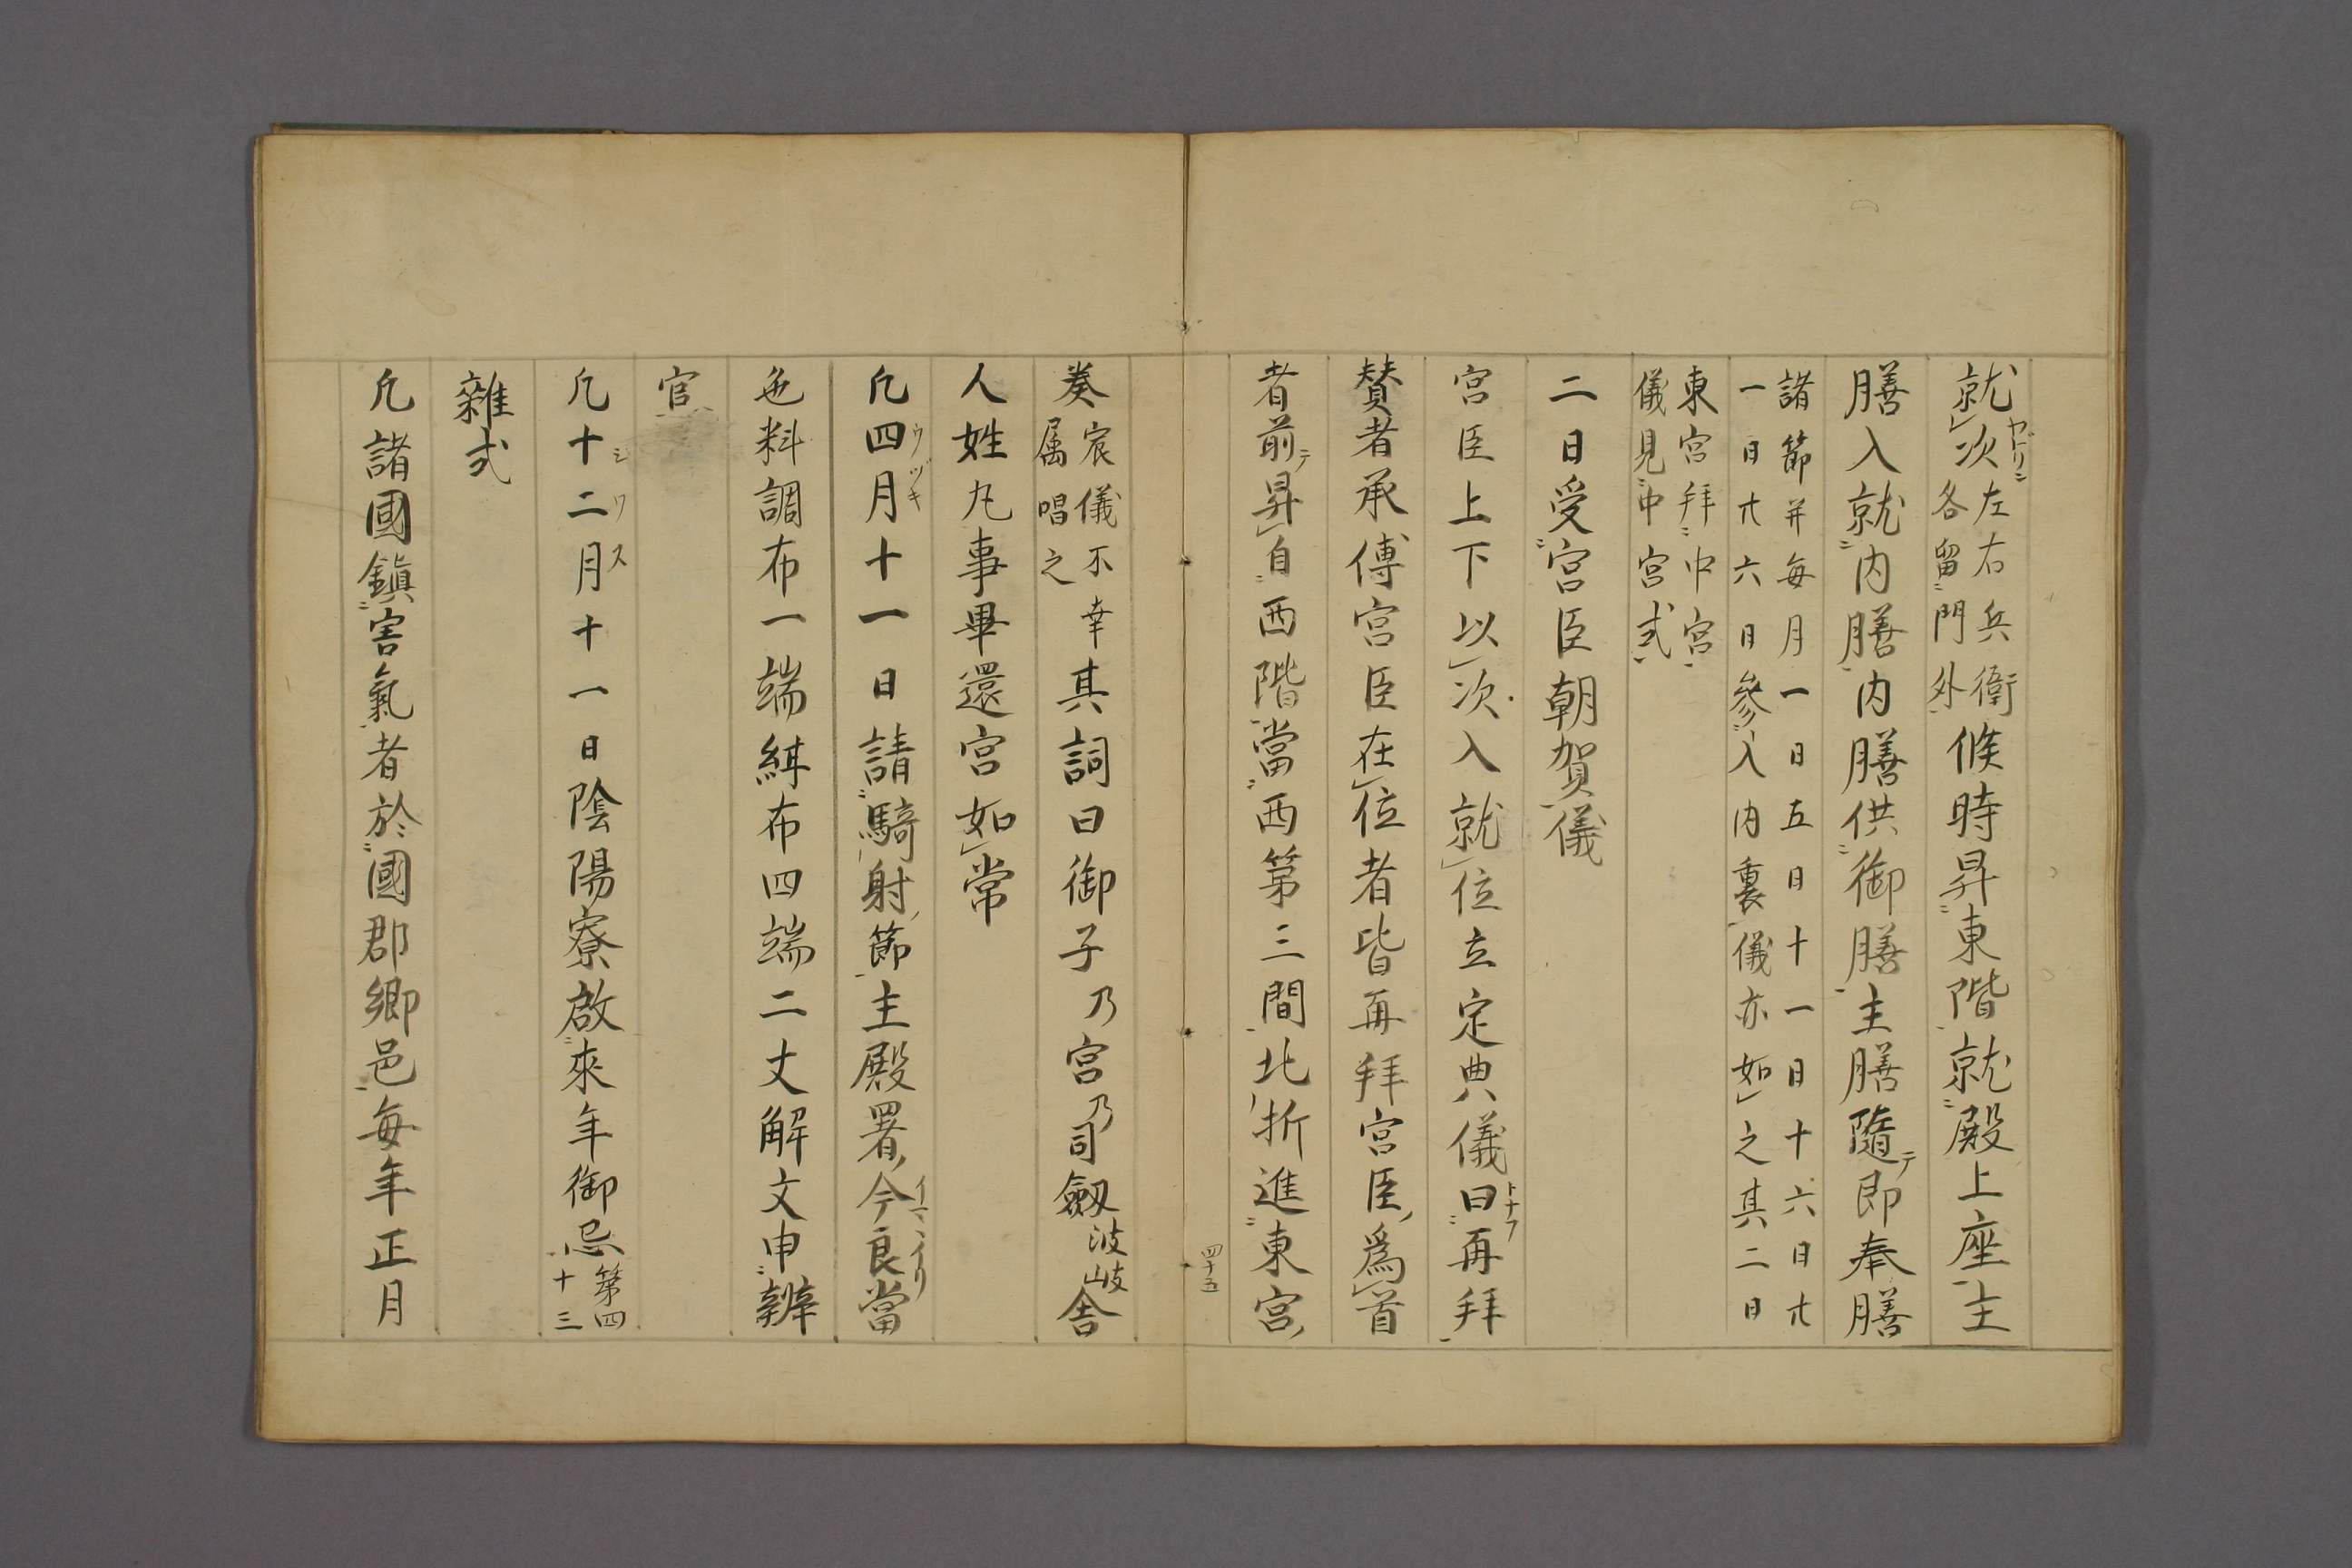 就次左右兵衛各留門外候時昇東階就殿上座主
膳入就内膳内膳供御膳主膳隨テ即奉膳
諸節并毎月一日五日十一日十六日廿
一日廿六日參入内裏儀亦如之其二日
東宮拜中宮
儀見中宮式
二日受宮臣朝賀儀
宮臣上下以次入就位立定典儀曰トナフ再拜
賛者承傳宮臣在位者皆再拜宮臣爲首
者前テ昇自西階當西第三間北折進東宮
四十五
奏宸儀不幸属唱之其詞曰御子乃宮乃司劔波岐舎
人姓九事畢還宮如常
凡四月ウヅキ十一日請騎射節主殿署今良當
色料調布一端緝布四端二丈解文申辨
官
凡十二月シワス十一日陰陽寮啟來年御忌第四十三
雜式
凡諸國鎭害氣者於國郡郷邑毎年正月